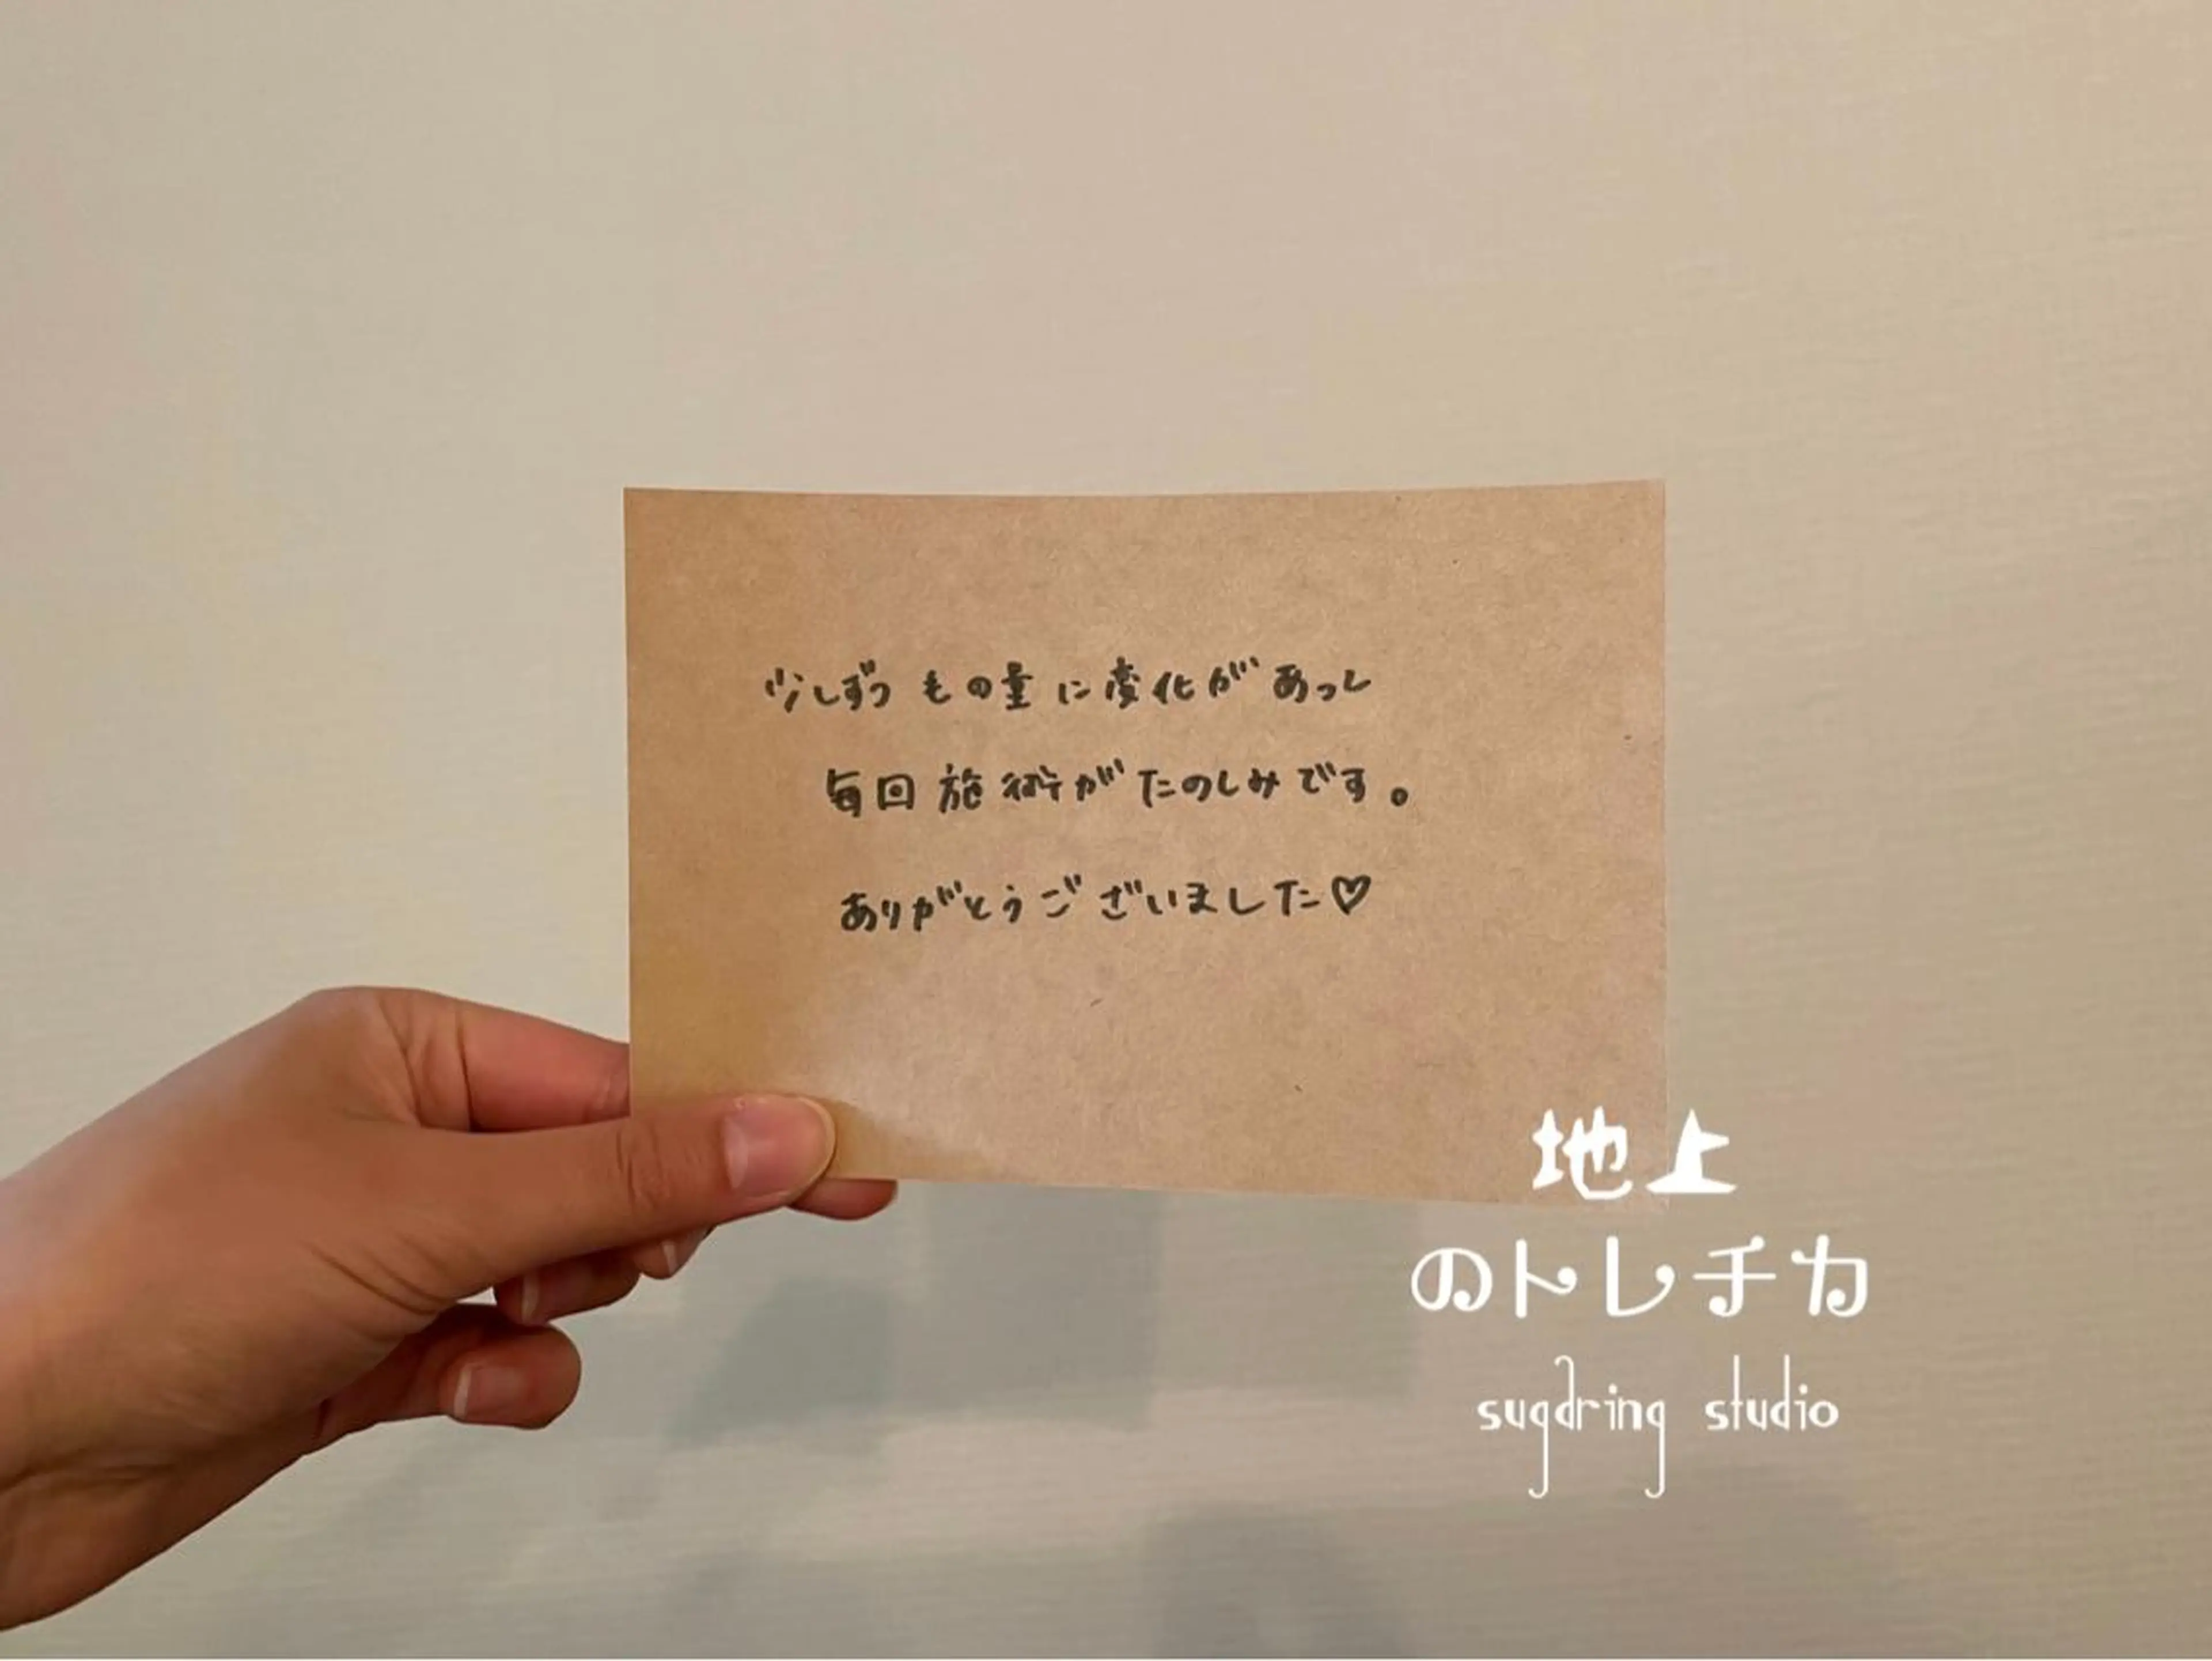 少しずつもの量に変化があっし
毎回施術がたのしみです。
ありがとうございました♡
地上
のトレチカ
sugdring studio